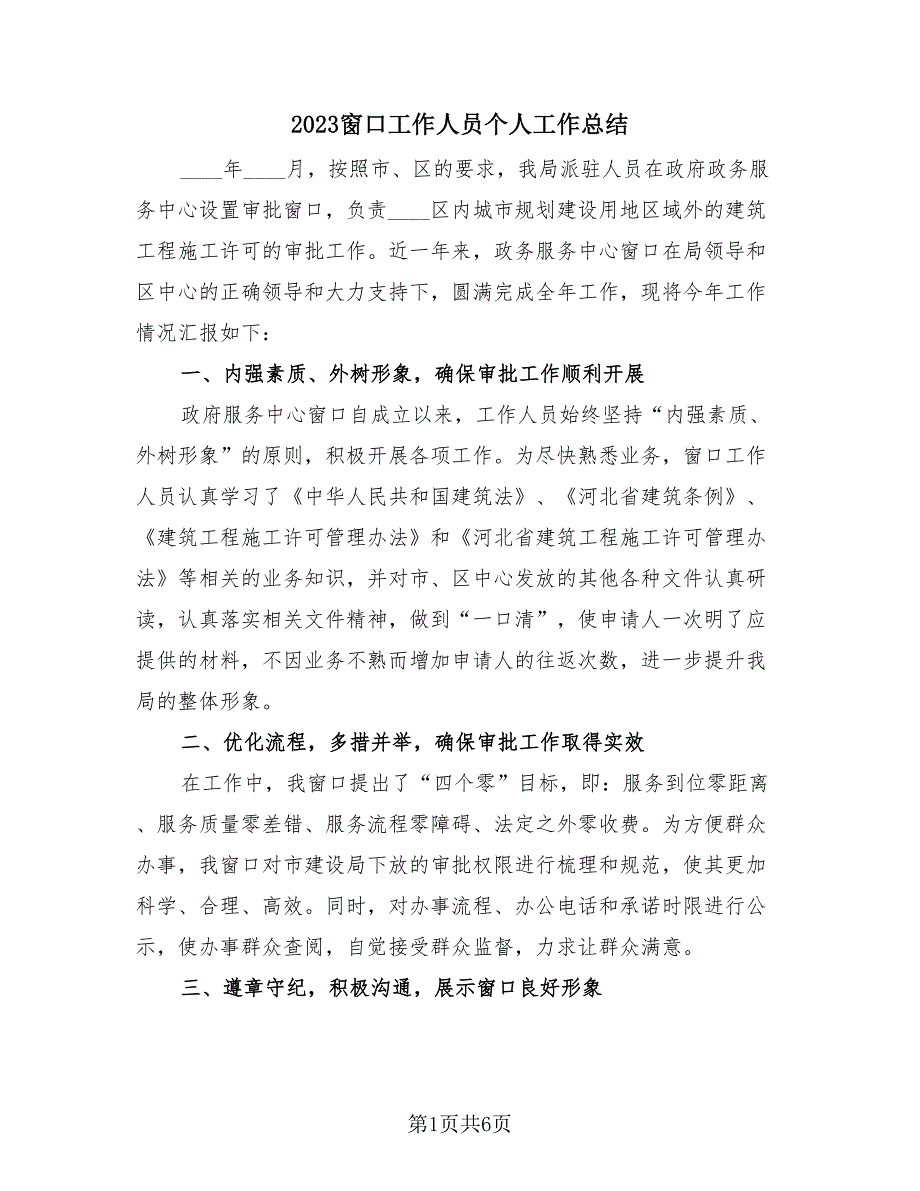 2023窗口工作人员个人工作总结
____年____月，按照市、区的要求，我局派驻人员在政府政务服
务中心设置审批窗口，负责____区内城市规划建设用地区域外的建筑
工程施工许可的审批工作。近一年来，政务服务中心窗口在局领导和
区中心的正确领导和大力支持下，圆满完成全年工作，现将今年工作
情况汇报如下：
一、内强素质、外树形象，确保审批工作顺利开展
政府服务中心窗口自成立以来，工作人员始终坚持“内强素质、
外树形象”的原则，积极开展各项工作。为尽快熟悉业务，窗口工作
人员认真学习了《中华人民共和国建筑法》、《河北省建筑条例》、
《建筑工程施工许可管理办法》和《河北省建筑工程施工许可管理办
法》等相关的业务知识，并对市、区中心发放的其他各种文件认真研
读，认真落实相关文件精神，做到“一口清”，使申请人一次明了应
提供的材料，不因业务不熟而增加申请人的往返次数，进一步提升我
局的整体形象。
二、优化流程，多措并举，确保审批工作取得实效
在工作中，我窗口提出了“四个零”目标，即：服务到位零距离
、服务质量零差错、服务流程零障碍、法定之外零收费。为方便群众
办事，我窗口对市建设局下放的审批权限进行梳理和规范，使其更加
科学、合理、高效。同时，对办事流程、办公电话和承诺时限进行公
示，使办事群众查阅，自觉接受群众监督，力求让群众满意。
三、遵章守纪，积极沟通，展示窗口良好形象
第1页共6页